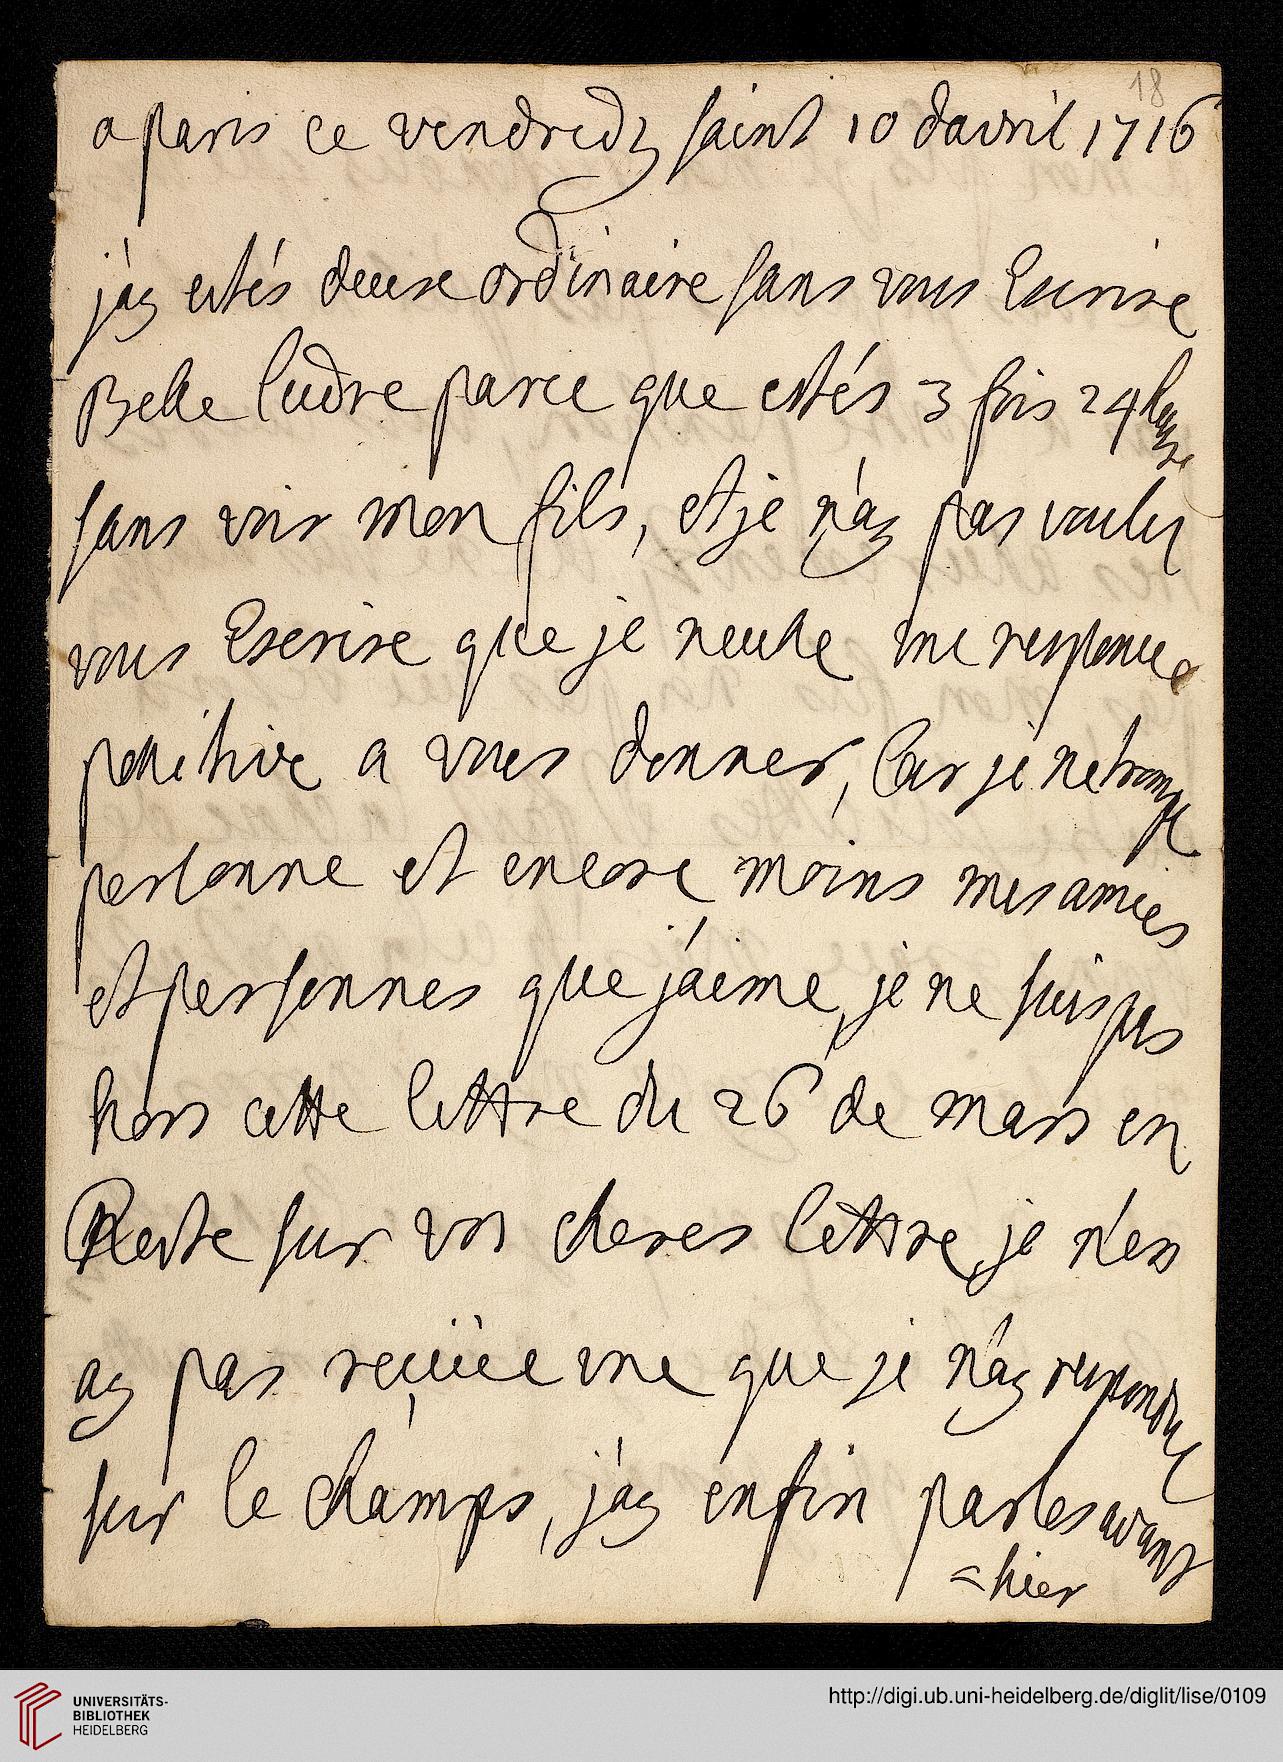 18
a paris ce vendredy saint 10 davril 1716
j'ay estés deuse ordinaire sans vous Escrire
Belle ludre parce que estés 3 fois 24 heure
sans voir mon fils, et je n'ay pas voulu
vous Escrire que je neuste une responce
possitive a vous donner, Car je ne trompe
personne et encore moins mes amies
et personnes que j'aime, je ne suis pas
hors cette lettre du 26 de mars en
Reste sur vos cheres lettre, je n'en
ay pas reçüee une que je n'ay respondue
sur le champs, j'ay enfin parles avant
=hier
UNIVERSITÄTS-
BIBLIOTHEK
HEIDELBERG
http://digi.ub.uni-heidelberg.de/diglit/lise/0109